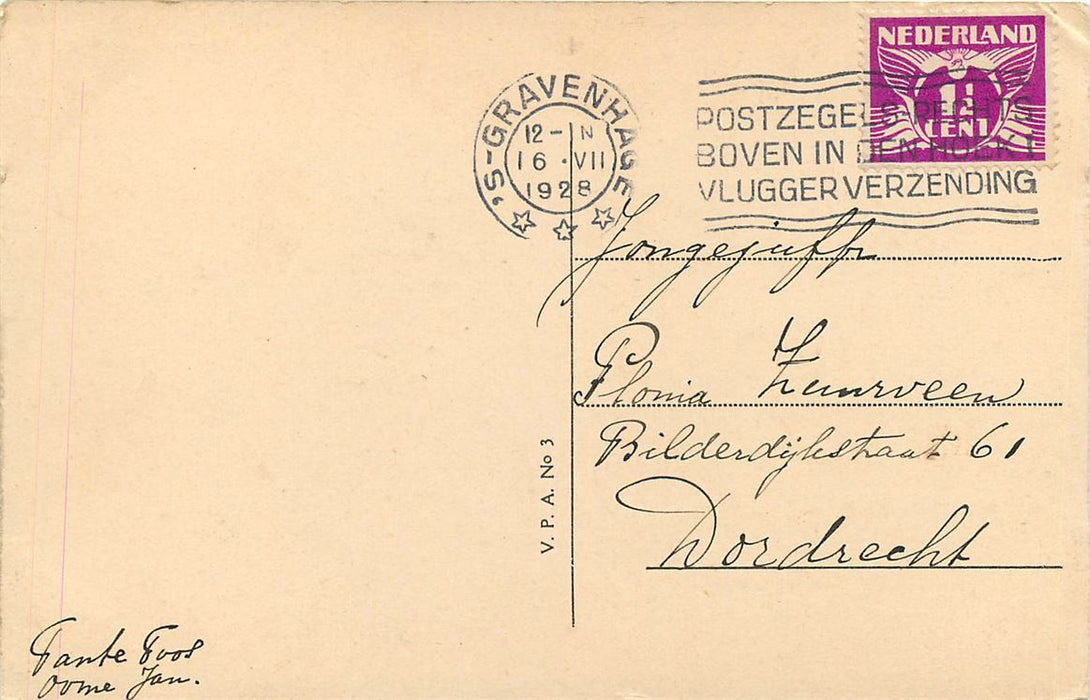 NEDERLAND
1½
CENT
'S-GRAVENHAGE
12-N
16 VII
1928
POSTZEGELS RECHTS
BOVEN IN DEN HOEK!
VLUGGER VERZENDING
Jongejuffr
Plonia Zuurveen
Bilderdijkstraat 61
Dordrecht
V. P. A. No 3
Tante Toos
Oome Jan.